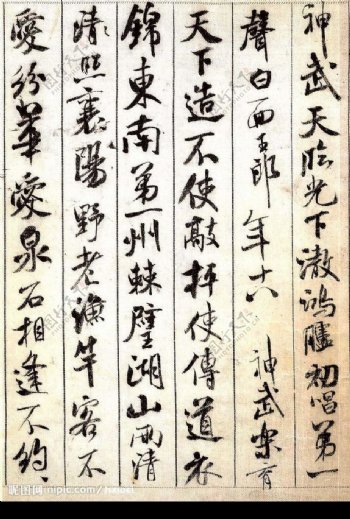 神武天臨光下澈鴻臚初唱第一
聲白面玉郎年十八神武樂育
天下造不使敲抨使傳道衣
錦東南第一州棘璧湖山兩清
清照襄陽野老漁竿客不
愛紛華愛泉石相逢不約
昵图网 nipic.com